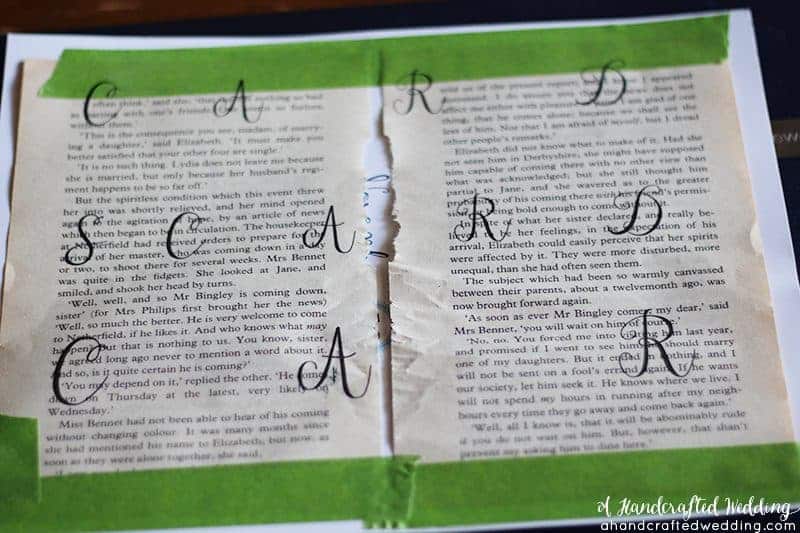 C A R D
S C A R D
C A R
often think,' said she, 'that
with one's friends.
'This is the consequence you see, madam, of marry-
ing a daughter,' said Elizabeth. 'It must make you
better satisfied that your other four are single.'
'It is no such thing. Lydia does not leave me because
she is married, but only because her husband's regi-
ment happens to be so far off.'
But the spiritless condition which this event threw
her into was shortly relieved, and her mind opened
again to the agitation of hope, by an article of news
which then began to be in circulation. The housekeeper
at Netherfield had received orders to prepare for the
arrival of her master, who was coming down in a day
or two, to shoot there for several weeks. Mrs Bennet
was quite in the fidgets. She looked at Jane, and
smiled, and shook her head by turns.
'Well, well, and so Mr Bingley is coming down,
sister' (for Mrs Philips first brought her the news)
'Well, so much the better. He is very welcome to come
to Netherfield, if he likes it. And who knows what may
happen? But that is nothing to us. You know, sister,
we agreed long ago never to mention a word about it,
and so, is it quite certain he is coming?'
'You may depend on it,' replied the other, 'He comes
down on Thursday at the latest, very likely on
Wednesday.'
Miss Bennet had not been able to hear of his coming
without changing colour. It was many months since
she had mentioned his name to Elizabeth; but now, as
soon as they were alone together, she said,
of the present report,
I appeared
affect me either with pleasure
I am glad of one
thing, that he comes alone; because we shall see the
less of him. Not that I am afraid of myself, but I dread
other people's remarks.'
Elizabeth did not know what to make of it. Had she
not seen him in Derbyshire, she might have supposed
him capable of coming there with no other view than
what was acknowledged; but she still thought him
partial to Jane, and she wavered as to the greater
of his coming there with her friend's permis-
being bold enough to come without it.
of what her sister declared, and really be-
her feelings, in the expectation of his
arrival, Elizabeth could easily perceive that her spirits
were affected by it. They were more disturbed, more
unequal, than she had often seen them.
The subject which had been so warmly canvassed
between their parents, about a twelvemonth ago, was
now brought forward again.
'As soon as ever Mr Bingley comes, my dear,' said
Mrs Bennet, 'you will wait on him of course.'
'No, no. You forced me into visiting him last year,
and promised if I went to see him, he should marry
one of my daughters. But it ended in nothing, and I
will not be sent on a fool's errand again.'
our society, let him seek it. He knows where we live. I
will not spend my hours in running after my neigh-
bours every time they go away and come back again.'
'Well, all I know is, that it will be abominably rude
if you do not wait on him. But, however, that shan't
prevent my asking him to dine here.'
A Handcrafted Wedding
aHandcraftedwedding.com